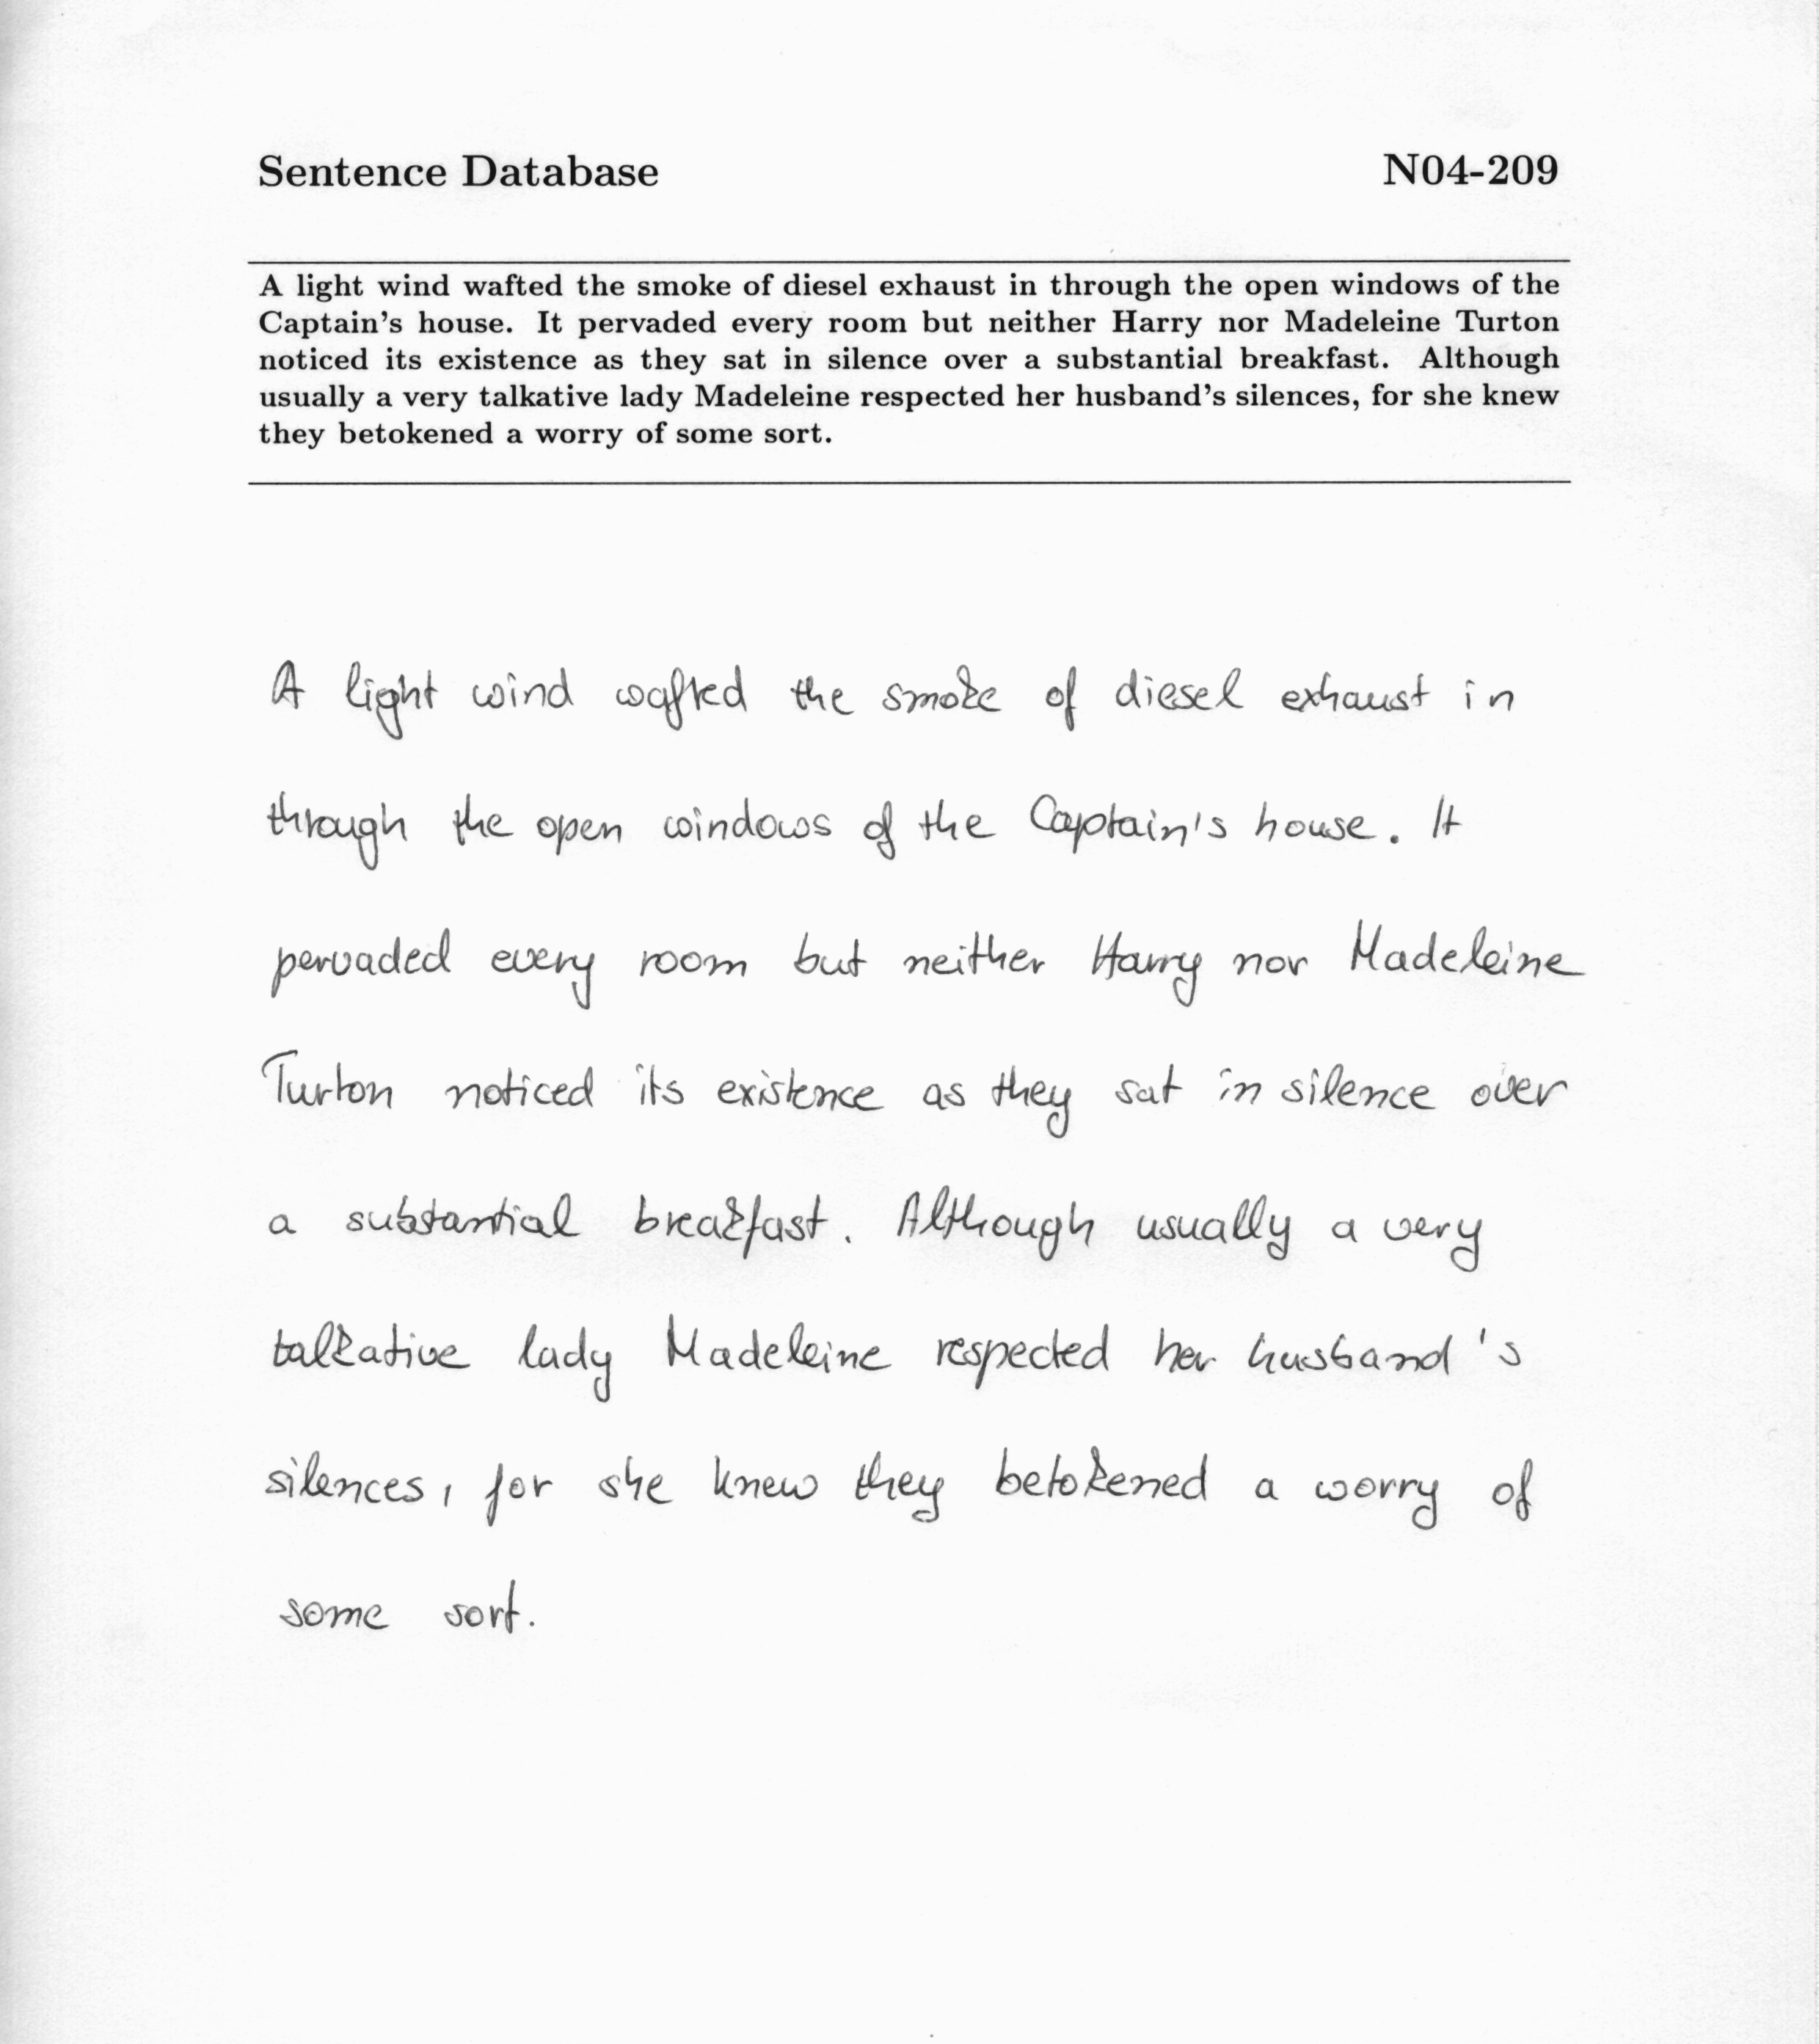 Sentence Database N04-209
A light wind wafted the smoke of diesel exhaust in through the open windows of the
Captain's house. It pervaded every room but neither Harry nor Madeleine Turton
noticed its existence as they sat in silence over a substantial breakfast. Although
usually a very talkative lady Madeleine respected her husband's silences, for she knew
they betokened a worry of some sort.
A light wind wafted the smoke of diesel exhaust in
through the open windows of the Captain's house. It
pervaded every room but neither Harry nor Madeleine
Turton noticed its existence as they sat in silence over
a substantial breakfast. Although usually a very
talkative lady Madeleine respected her husband's
silences, for she knew they betokened a worry of
some sort.